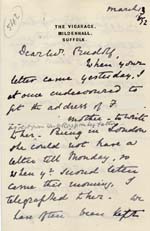 March 3
/92
5402
THE VICARAGE,
MILDENHALL,
SUFFOLK.
Dear Mr. Rudolf,
When your
letter came yesterday, I
at once endeavoured to
get the address of F.
mother - to write
her. Being in London
she could not have a
letter till Monday, so
when yr second letter
came this morning, I
telegraphed to her. We
have often been kept